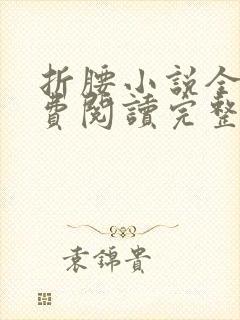 折腰小說全
費閱讀完整
袁錦貴